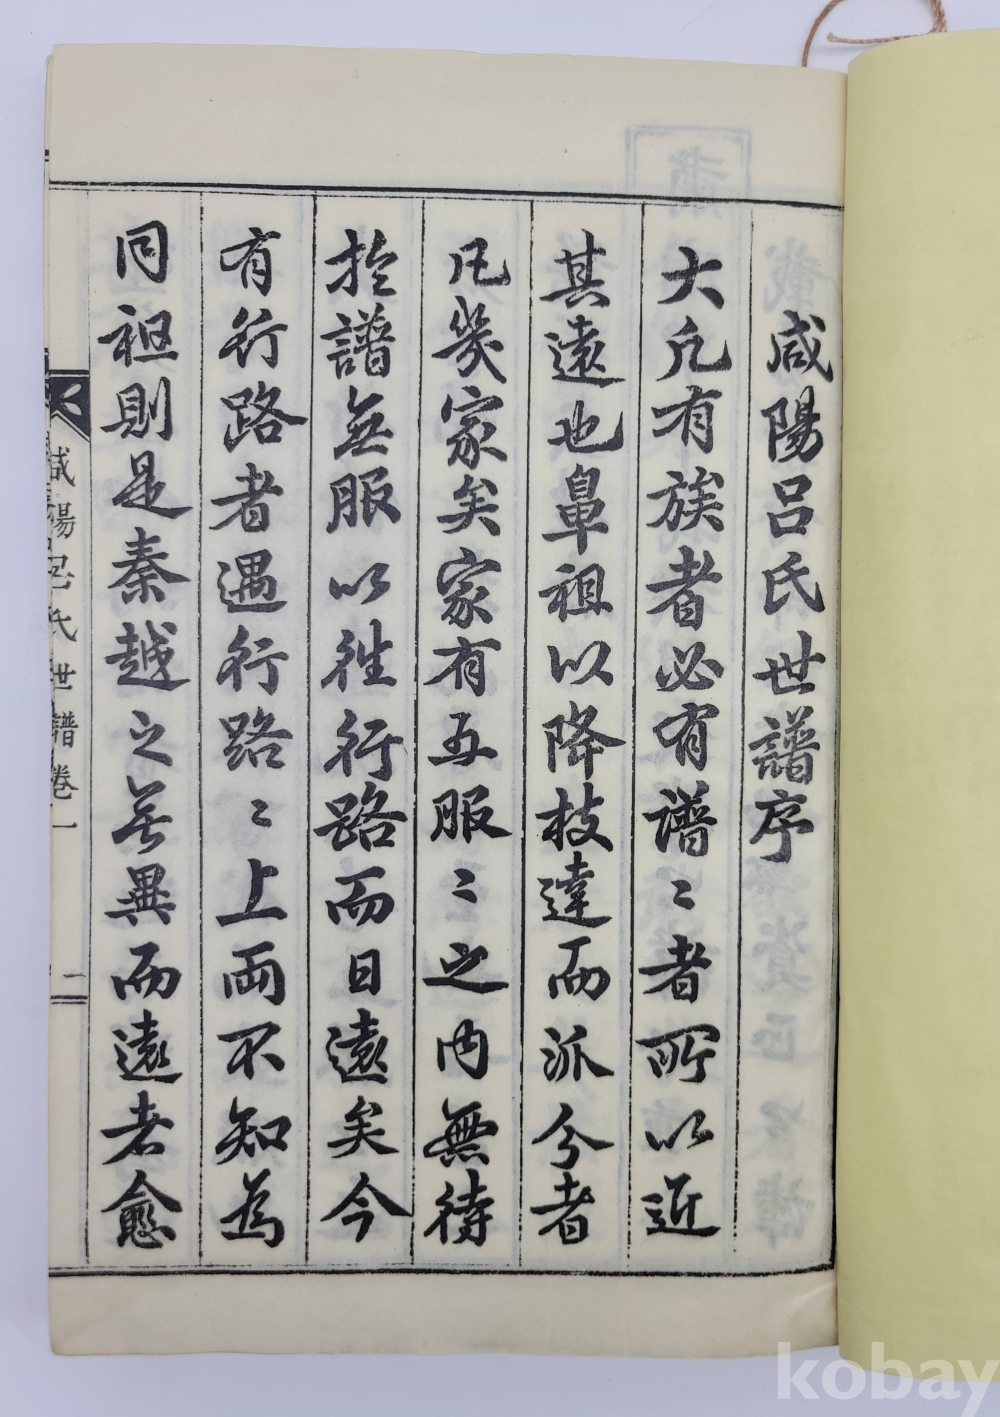 咸陽呂氏世譜序
大凡有族者必有譜〻者所以近
其遠也鼻祖以降枝達而派分者
凡幾家矣家家有五服〻之内無待
於譜無服以徃行路而日遠矣今
有行路者遇行路〻上両不知為
同祖則是秦越之無異而遠者愈
咸陽呂氏世譜卷一
一
kobay